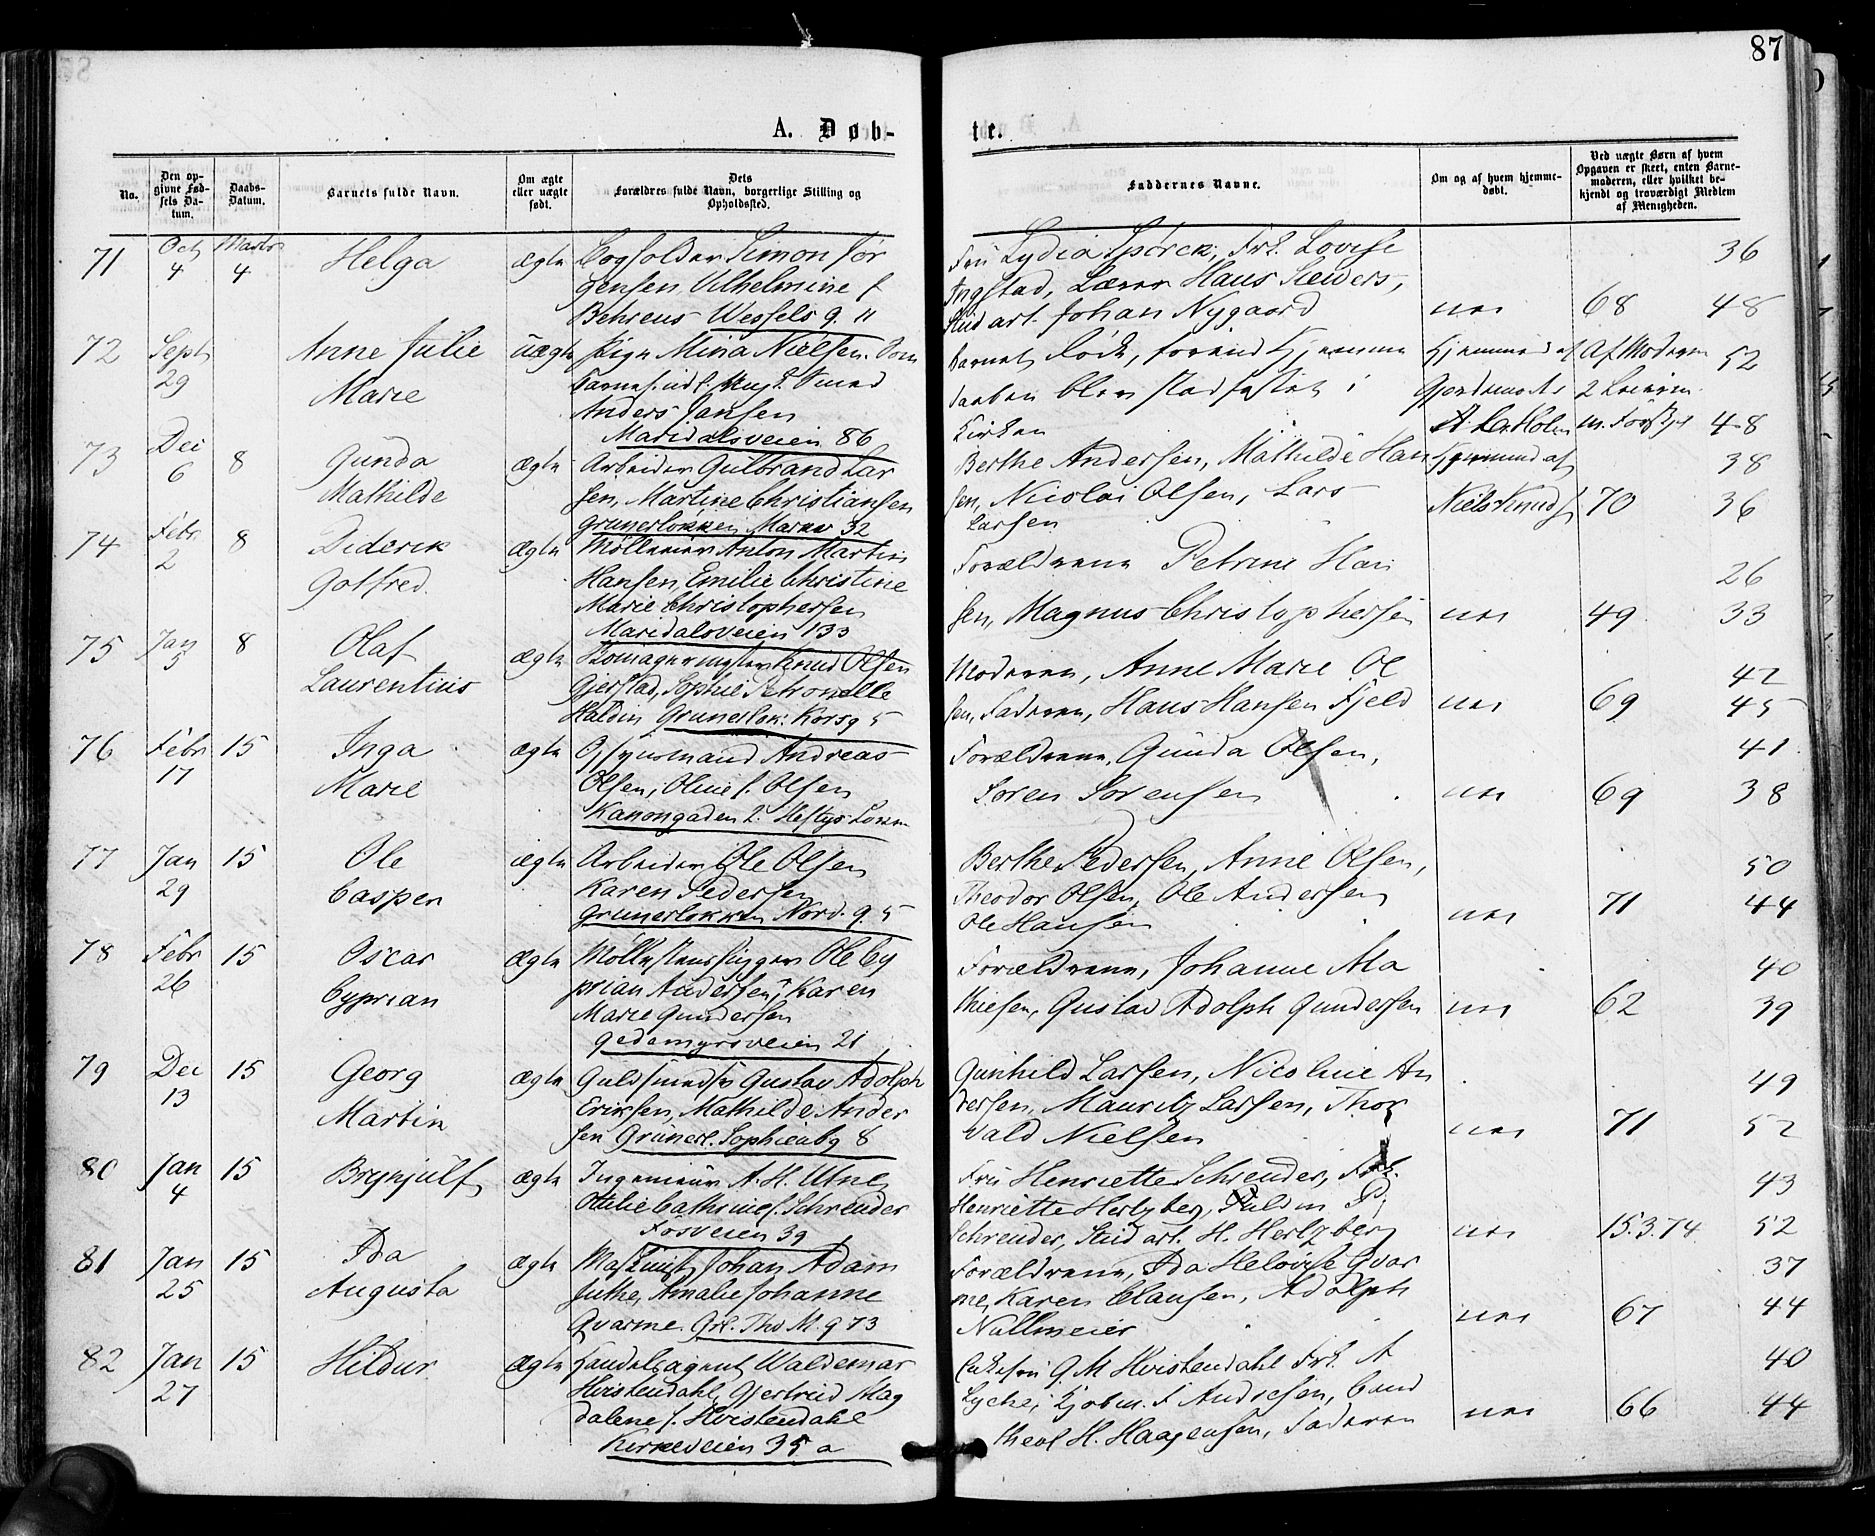 87
A. Døb-
te.
No.
Den op-
givne Fød-
sels Da-
tum.
Daabs-
Datum.
Barnets fulde Navn.
Om ægte
eller uægte
født.
Dets
Forældres fulde Navn, borgerlige Stilling og
Opholdssted.
Faddernes Navne.
Om og af hvem hjemme-
døbt.
Ved uægte Børn af hvem
Opgaven er skeet, enten Barne-
moderen, eller hvilket be-
kjendt og troværdigt Medlem
af Menigheden.
71 Oct 4 Marts 4 Helga ægte
Simon Jør
gensen Vilhelmine f
Behrens Wessels g. 11
Fru Lydia Spørck, Frk. Lovise
Ingstad, Lærer Hans Siewers,
Stud art. Johan Nygaard nei 68
36
48
72 Sept 29 Anne Julie
Marie uægte
Pige Mina Nielsen.
Smed
Anders Jansen
Maridalsveien 86
Barnet døde, forend Hjemme
daaben blev stadfæstet i
Kirken
Hjemmed af
Af Moderen
52
48
73 Dec 6 8 Gunda
Mathilde ægte
Arbeider Gulbrand Lar
sen, Martine Christiansen
Grunerløkken Markv 32
Berthe Andersen, Mathilde Han
sen, Nicolai Olsen, Lars
Larsen
Hjemmed af
Niels Knuds 70
38
36
74 Febr 2 8 Diderik
Gotfred. ægte
Mølleeier Anton Martin
Hansen, Emilie Christine
Marie Christophersen
Maridalsveien 133
Forældrene Petrine Han
sen, Magnus Christophersen nei 49
26
33
75 Jan 5 8 Olaf
Laurentius ægte
Knud Olsen
Gjerstad, Sophie Petronelle
Haldin Grunerløk: Korsg 5
Moderen, Anne Marie Ol
sen, Faderen, Hans Hansen Fjeld nei 69
42
45
76 Febr 17 15 Inga
Marie ægte
Opsynsmand Andreas
Olsen, Oline f. Olsen
Kanongaden 2. Heftys
Forældrene, Gunda Olsen,
Søren Sørensen nei 69
41
38
77 Jan 29 15 Ole
Casper ægte
Arbeider Ole Olsen
Karen Pedersen
Grunerløkken Nord. g. 5
Berthe Pedersen, Anne Olsen,
Theodor Olsen, Ole Andersen
Ole Hansen nei 71
50
44
78 Febr 26 15 Oscar
Cyprian ægte
Møllestenshugger Ole Cy
prian Andersen, Karen
Marie Gundersen
Gedemyrsveien 21
Forældrene, Johanne Ma
thiesen, Gustav Adolph Gundersen nei 62
40
39
79 Dec 13 15 Georg
Martin ægte
Guldsmedsv Gustav Adolph
Eriksen, Mathilde Ander
sen Grunerl. Sophienbg 8
Gunhild Larsen, Nicoline An
dersen, Mauritz Larsen, Thor
vald Nielsen nei 71
49
52
80 Jan 4 15 Brynjulf ægte
Ingenieur A. H. Utne
Othilie Cathrine f. Schreuder
Fosveien 39
Fru Henriette Schreuder, Frk.
Henriette Hertzberg, Fuldm P.
Schreuder, Stud art. H. Hertzberg nei 15.3.74.
43
52
81 Jan 25 15 Ida
Augusta ægte
Maskinist Johan Adam
Juthe, Amalie Johanne
Qvarme. Grl. Tho M. g 73
Forældrene, Ida Helovise Qvar
me, Karen Clausen, Adolph
Nallmeier nei 67
37
44
82 Jan 27 15 Hildur ægte
Handelsagent Waldemar
Hvistendahl, Gjertrud Mag
dalene f. Hvistendahl
Kirkeveien 35 a
G. M Hvistendahl Frk. A
Lyche, Kjøbm. F Andresen, Cand
theol H. Haagensen, Faderen nei 66
40
44